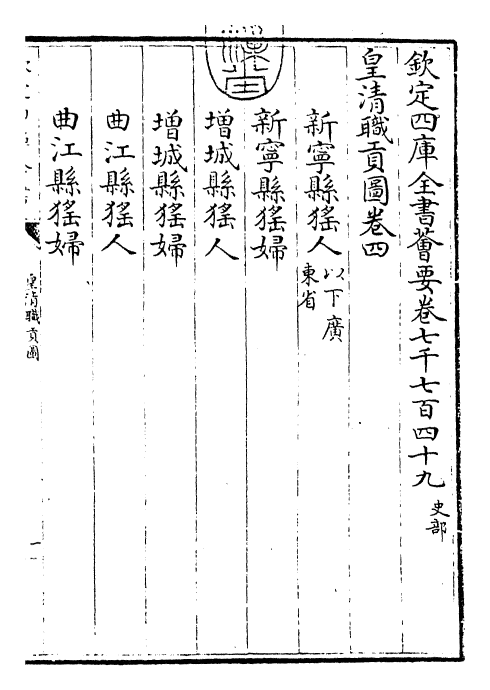 欽定四庫全書薈要卷七千七百四十九 史部
皇清職貢圖卷四
新寧縣猺人 以下廣東省
新寧縣猺婦
增城縣猺人
增城縣猺婦
曲江縣猺人
曲江縣猺婦
皇清職貢圖
一